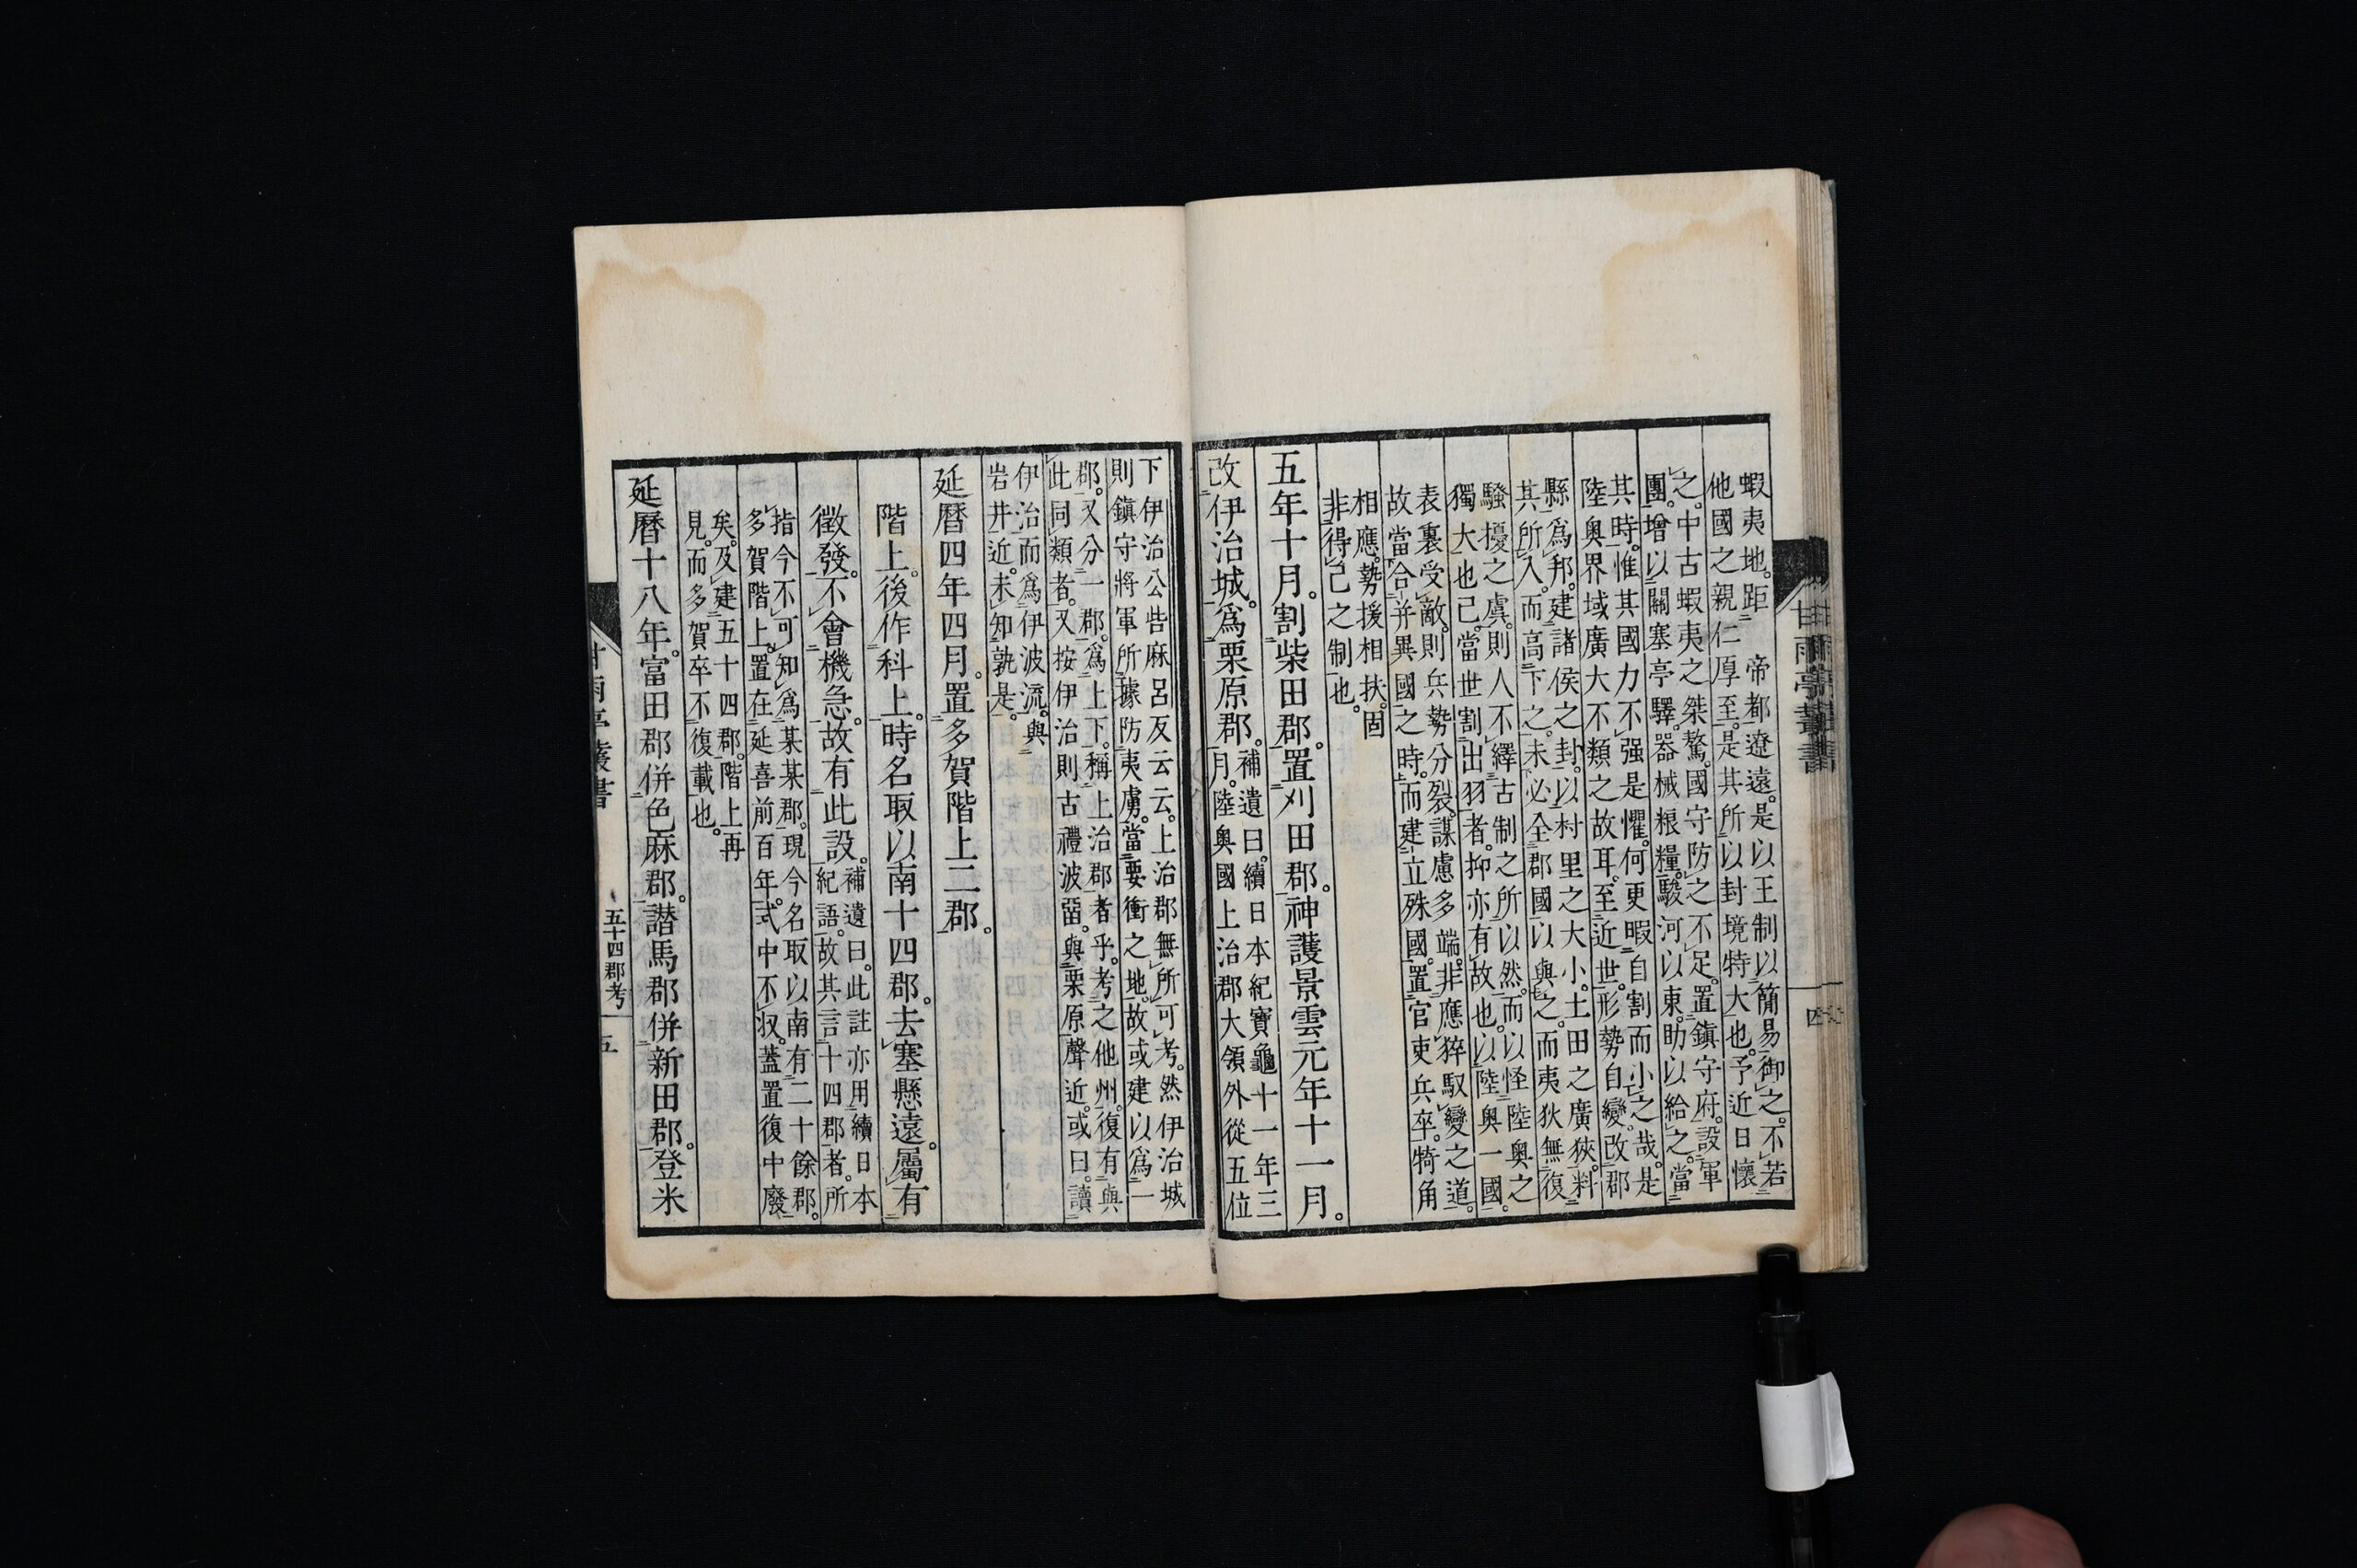 蝦夷地。距 帝都遼遠。是以王制以簡易御之。不若
他國之親仁厚至。是其所以封境特大也。予近日懷
之。中古蝦夷之桀驁。國守防之不足。置鎮守府。設軍
團。增以關塞亭驛。器械粮糧。駿河以東。助以給之。當
其時。惟其國力不强是懼。何更暇自割而小之哉。是
陸奥界域廣大不類之故耳。至近世。形勢自變。改郡
縣爲邦。建諸侯之封。以村里之大小。土田之廣狹。料
其所入。而高下之。未必全郡國以與之。而夷狄無復
騷擾之虞。則人不繹古制之所以然。而以怪陸奥之
獨大也已。當世割出羽者。抑亦有故也。以陸奥一國。
表裏受敵。則兵勢分裂。謀慮多端。非應猝馭變之道。
故當合并異國之時。而建立殊國。置官吏兵卒。犄角
相應。勢援相扶。固
非得已之制也。
五年十月。割柴田郡。置刈田郡。神護景雲元年十一月。
改伊治城。爲栗原郡。補遺曰。續日本紀寶龜十一年三
月。陸奥國上治郡大領外從五位
下伊治公呰麻呂反云云。上治郡無所可考。然伊治城
則鎮守將軍所據防夷虜。當要衝之地。故或建以爲一
郡。又分一郡。爲上下。稱上治郡者乎。考之他州。復有與
此同類者。又按伊治則古禮波留。與栗原聲近。或曰。讀
伊治而爲伊波流。與
岩井近。未知孰是。
延曆四年四月。置多賀階上二郡。
階上。後作科上。時名取以南十四郡。去塞懸遠。屬有
徵發。不會機急。故有此設。補遺曰。此註亦用續日本
紀語。故其言十四郡者。所
指今不可知爲某某郡。現今名取以南有二十餘郡。
多賀階上。置在延喜前百年。式中不収。蓋置復中廢
矣。及建五十四郡。階上再
見。而多賀卒不復載也。
延曆十八年。富田郡併色麻郡。讃馬郡併新田郡。登米
甘雨亭叢書
四
五十四郡考
五